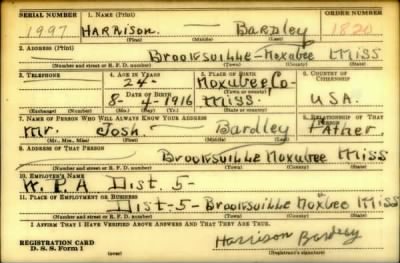 SERIAL NUMBER 1. NAME (Print) ORDER NUMBER
1997 HARRISON. — BARDLEY 1820
(First) (Middle) (Last)
2. ADDRESS (Print)
— Brooksville – Noxubee Miss
(Number and street or R. F. D. number) (Town) (County) (State)
3. TELEPHONE 4. AGE IN YEARS 5. PLACE OF BIRTH 6. COUNTRY OF CITIZENSHIP
24 Noxubee Co-
DATE OF BIRTH (Town or county)
8- 4-1916 Miss. USA.
(Exchange) (Number) (Mo.) (Day) (Yr.) (State or country)
7. NAME OF PERSON WHO WILL ALWAYS KNOW YOUR ADDRESS 8. RELATIONSHIP OF THAT PERSON
Mr. Josh. — Bardley Father.
(Mr., Mrs., Miss) (First) (Middle) (Last)
9. ADDRESS OF THAT PERSON
Brooksville Noxubee Miss
(Number and street or R. F. D. number) (Town) (County) (State)
10. EMPLOYER'S NAME
W.P.A Dist. 5-
11. PLACE OF EMPLOYMENT OR BUSINESS
Dist-5- Brooksville Noxubee Miss
(Number and street or R. F. D. number) (Town) (County) (State)
I AFFIRM THAT I HAVE VERIFIED ABOVE ANSWERS AND THAT THEY ARE TRUE.
Harrison Bardley
REGISTRATION CARD
D. S. S. Form 1 (Registrant's signature)